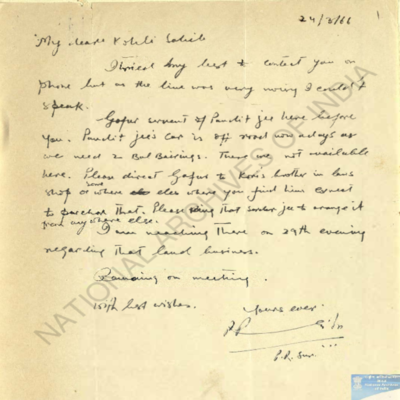 24/8/66
My dear Kohli Sahib
I tried my best to contact you on
phone but as the line was very noisy I couldn't
speak.
Gafur servant of Pandit jee here before
you. Pandit jee's car is off road now adays as
we need 2 Ball Bearings. These are not available
here. Please direct Gafur to brother in laws
shop or some where else where you find him
to purchase that. Please that jee to arrange it
from any where else.
I am reaching there on 29th evening
regarding that land business.
Remaining on meeting.
With best wishes.
Yours ever
P.R. Suri
NATIONAL ARCHIVES OF INDIA